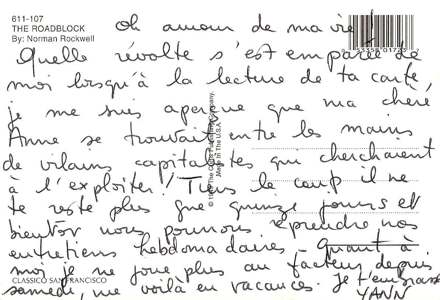 611-107
THE ROADBLOCK
By: Norman Rockwell
oh amour de ma vie!
Quelle révolte s'est emparée de
moi lorsqu'à la lecture de ta carte,
je me suis aperçue que ma chère
Anne se trouvait entre les mains
de vilains capitalistes qui cherchaient
à l'exploiter! Tous le coup il ne
te reste plus que quinze jours et
bientôt nous pourrons reprendre nos
entretiens hebdomadaires. Quant à
moi je ne joue plus au facteur depuis
samedi, me voilà en vacances. Je t'embrasse
YANN
CLASSICO SAN FRANCISCO
Made in The U.S.A.